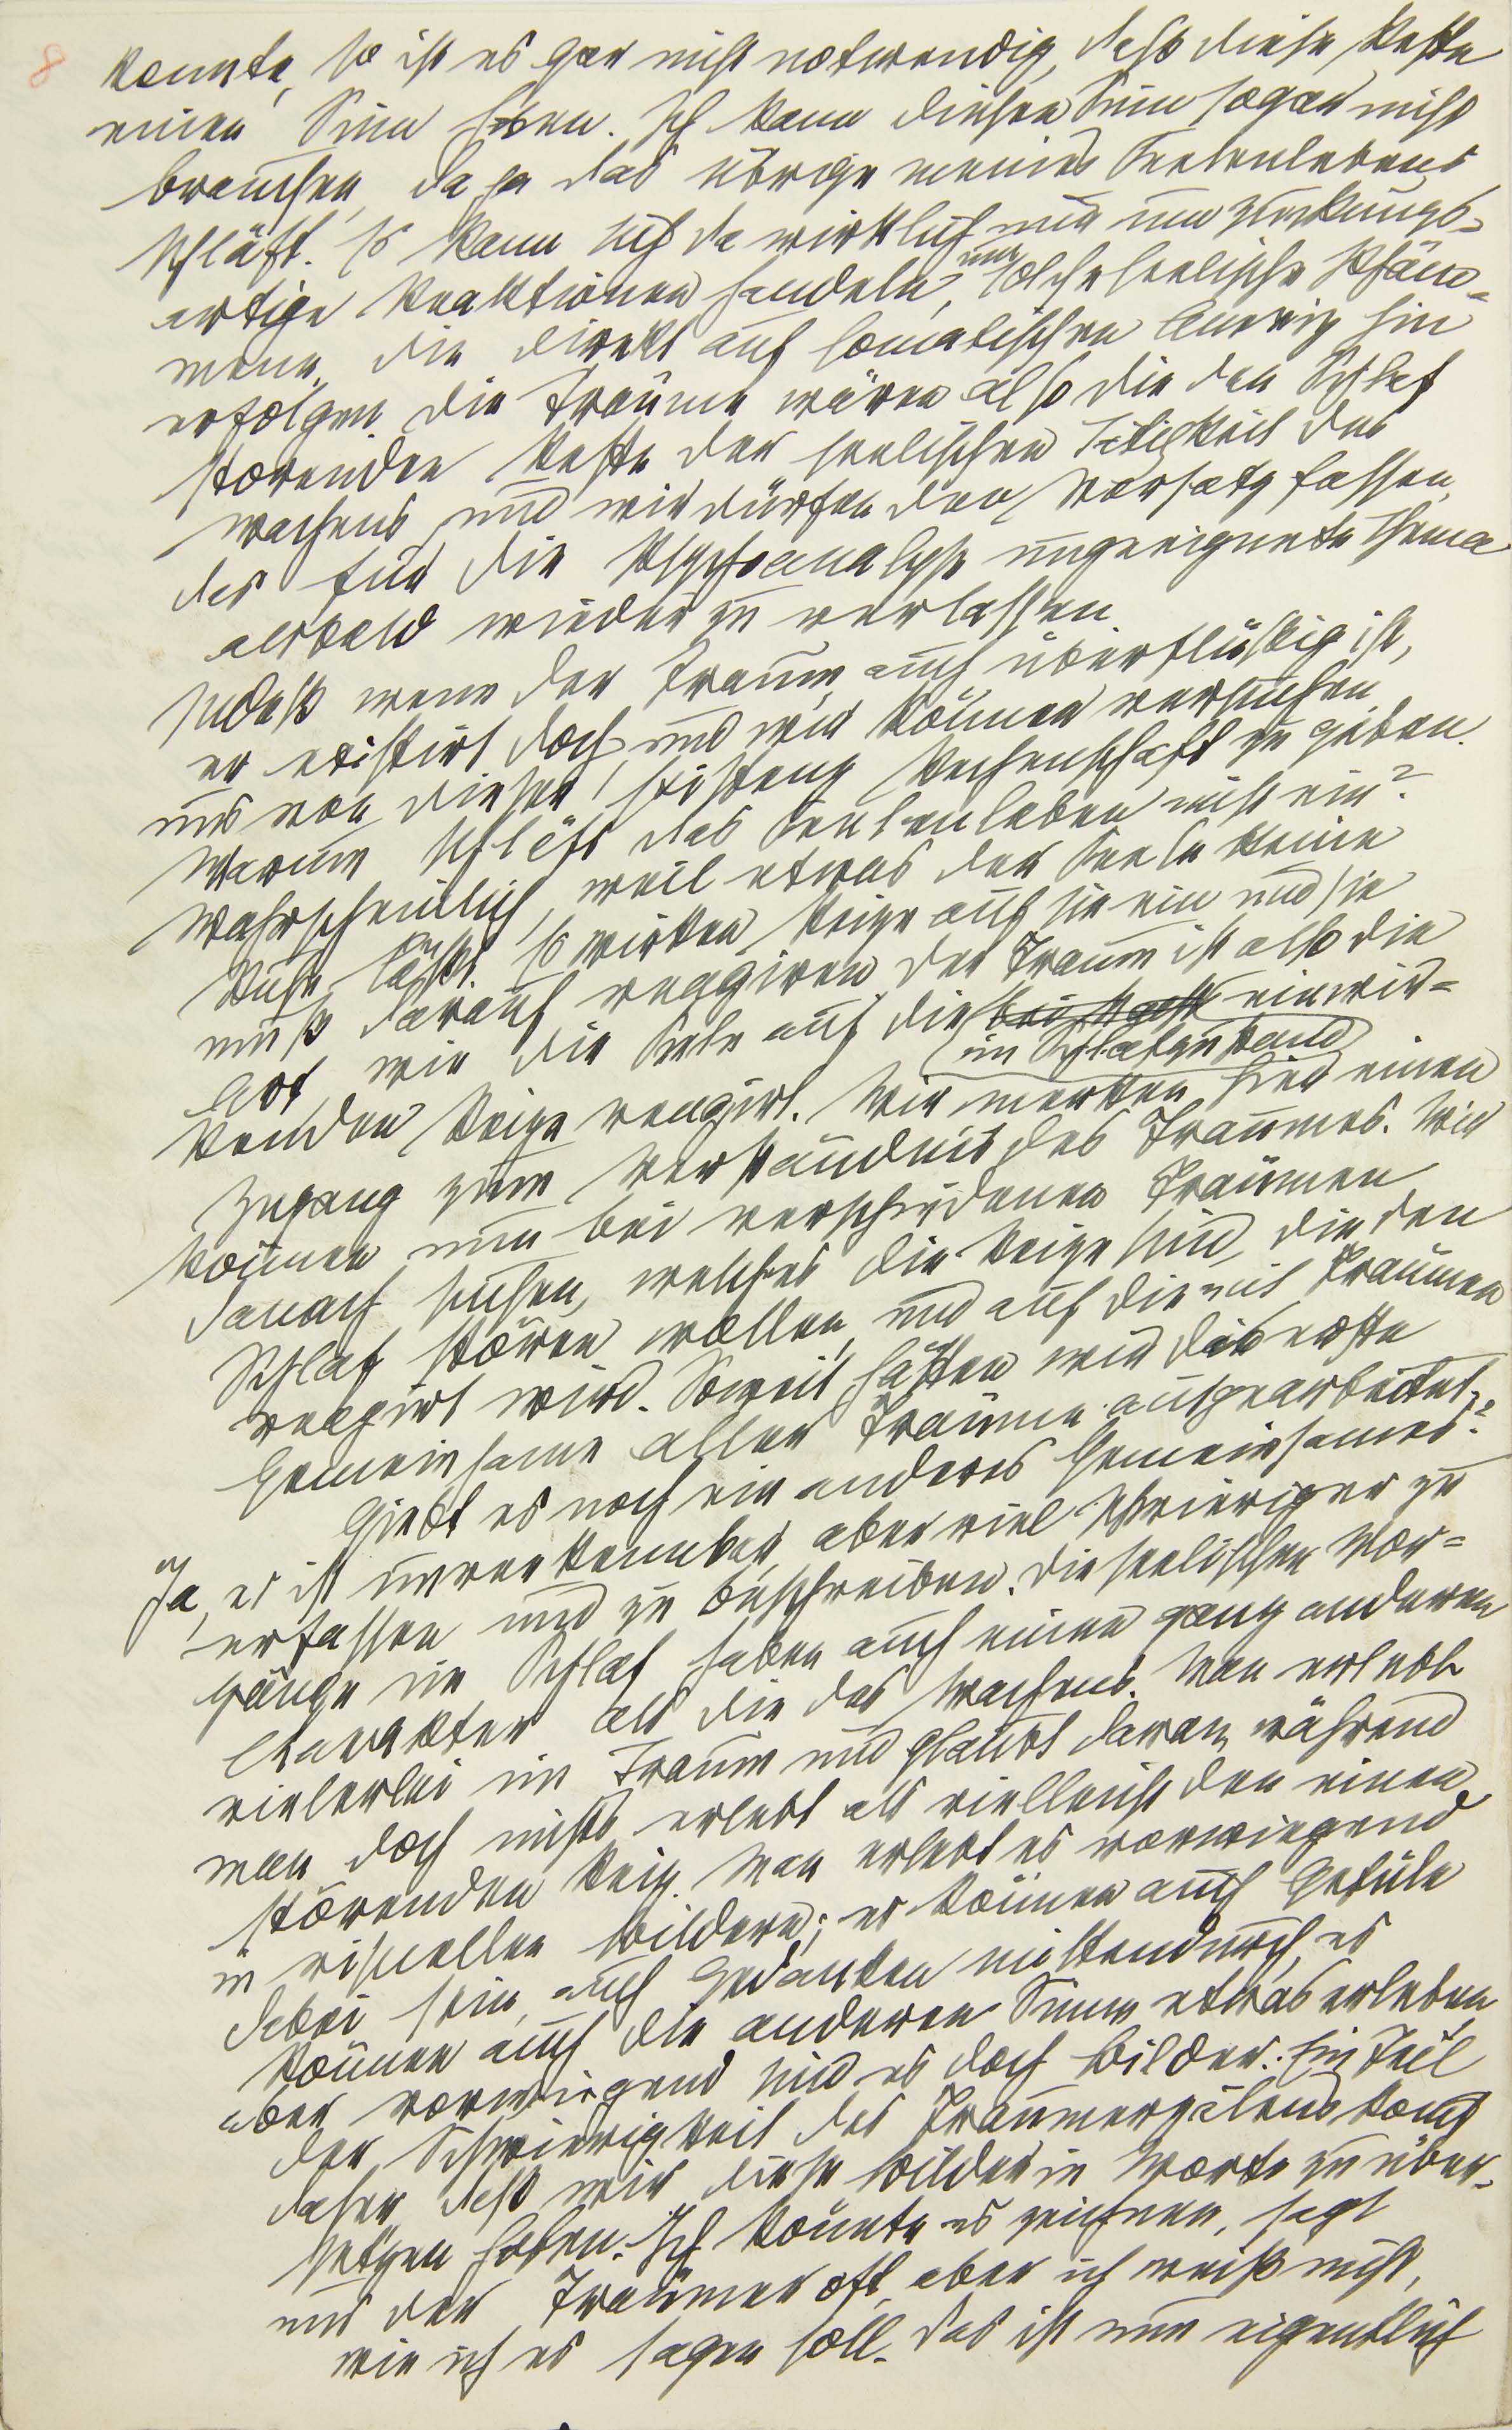 8
konnte, so ist es gar nicht notwendig, daß diese Reste
einen Sinn haben. Ich kann diesen Sinn sogar nicht
brauchen, da ja das übrige meines Seelenlebens
schläft. Es kann sich da wirklich nur um zuckungs-
artige Reaktionen handeln, nur solche seelische Phäno-
mene, die direkt auf somatischen Anreiz hin
erfolgen. Die Träume wären also die den Schlaf
störenden Reste der seelischen Tätigkeit des
Wachens und wir dürfen den Vorsatz fassen,
das für die Psychoanalyse ungeeignete Thema
alsbald wieder zu verlassen.
Indeß wenn der Traum auch überflüssig ist,
er existirt doch und wir können versuchen
uns von dieser Existenz Rechenschaft zu geben.
Warum schläft das Seelenleben nicht ein?
Wahrscheinlich, weil etwas der Seele keine
Ruhe läßt. Es wirken Reize auf sie ein und sie
muß darauf reagiren. Der Traum ist also die
Art, wie die Seele auf die einwir-
im Schlafzustand
kenden Reize reagirt. Wir merken hier einen
Zugang zum Verständnis des Traumes. Wir
können nun bei verschiedenen Träumen
danach suchen, welches die Reize sind, die den
Schlaf stören wollen und auf die mit Träumen
reagirt wird. Soweit hätten wir das erste
Gemeinsame aller Träume aufgearbeitet.
Giebt es noch ein anderes Gemeinsames?
Ja, es ist unverkennbar, aber viel schwieriger zu
erfassen und zu beschreiben. Die seelischen Vor-
gänge im Schlaf haben auch einen ganz anderen
Charakter als die des Wachens. Man erlebt
vielerlei im Traum und glaubt daran, während
man doch nichts erlebt als vielleicht den einen
störenden Reiz. Man erlebt es vorwiegend
in visuellen Bildern; es können auch Gefüle
dabei sein, auch Gedanken mittendurch, es
können auch die anderen Sinne etwas erleben,
aber vorwiegend sind es doch Bilder. Ein Teil
der Schwierigkeit des Traumerzälens kommt
daher, daß wir diese Bilder in Worte zu über-
setzen haben. Ich könnte es zeichnen, sagt
uns der Träumer oft, aber ich weiß nicht,
wie ich es sagen soll. Das ist nun eigentlich